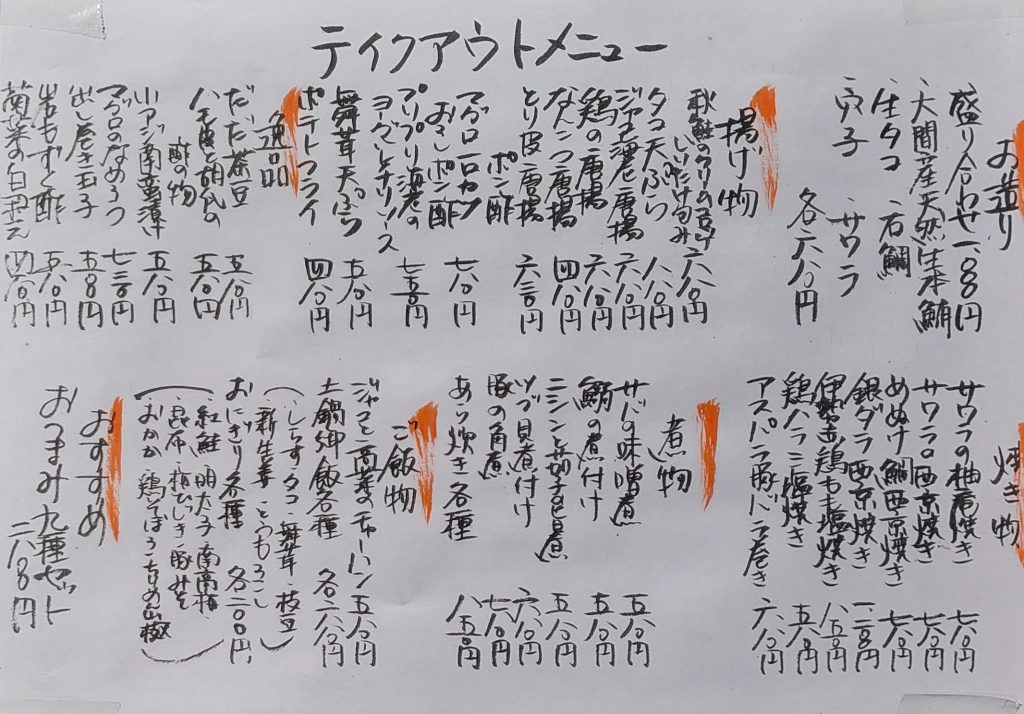 テイクアウトメニュー
お造り
盛り合わせ 一、八〇〇円
大間産天然生本鮪
生タコ 石鯛
穴子 サワラ
各六八〇円
揚げ物
タコ天ぷら 八八〇円
ジャコと海老の唐揚 六八〇円
鶏の唐揚 六八〇円
なんこつ唐揚 四八〇円
とり皮唐揚
ポン酢 六三〇円
マグロ一口カツ
おろしポン酢 七八〇円
プリプリ海老の
ヨーグルトチリソース
舞茸天ぷら 五八〇円
ポテトフライ 四八〇円
逸品
だだ茶豆 五八〇円
ハモ皮と胡瓜の
酢の物 五八〇円
小アジ南蛮漬け 五八〇円
マグロのなめろう 七三〇円
出し巻き玉子 五八〇円
岩もずく酢 五八〇円
菊菜の白和え 四八〇円
焼き物
サワラの柚庵焼き 七八〇円
サワラの西京焼き 七八〇円
めぬけ鯛西京焼き 七八〇円
銀ダラ西京焼き
鶏もも塩焼き 八五〇円
鶏ハラミ塩焼き 五八〇円
アスパラ豚バラ巻き 六八〇円
煮物
サバの味噌煮 五八〇円
鯛の煮付け 五八〇円
ニシンと茄子の旨煮 五八〇円
ツブ貝煮付け 六八〇円
豚の角煮 七八〇円
あら炊き各種 八五〇円
ご飯物
ジャコと高菜のチャーハン 五八〇円
土鍋御飯各種 各二、六八〇円
(しらす タコ 舞茸 枝豆
新生姜 とうもろこし)
おにぎり各種 各二〇〇円
(紅鮭 明太子 南高梅
昆布 梅ひじき 豚みそ
おかか 鶏そぼろ ちりめん山椒)
おすすめ
おつまみ九種セット